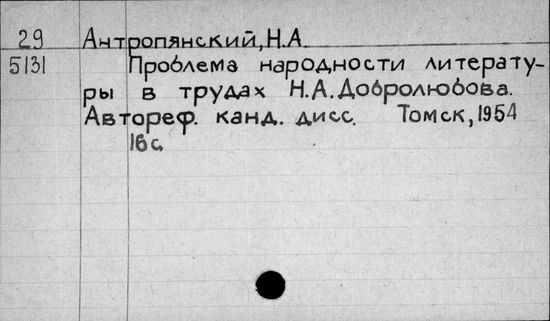 29 Антропянский, Н.А.
5131 Проблема народности литерату-
ры в трудах Н.А. Добролюбова.
Автореф. канд. дисс. Томск, 1954
16с.